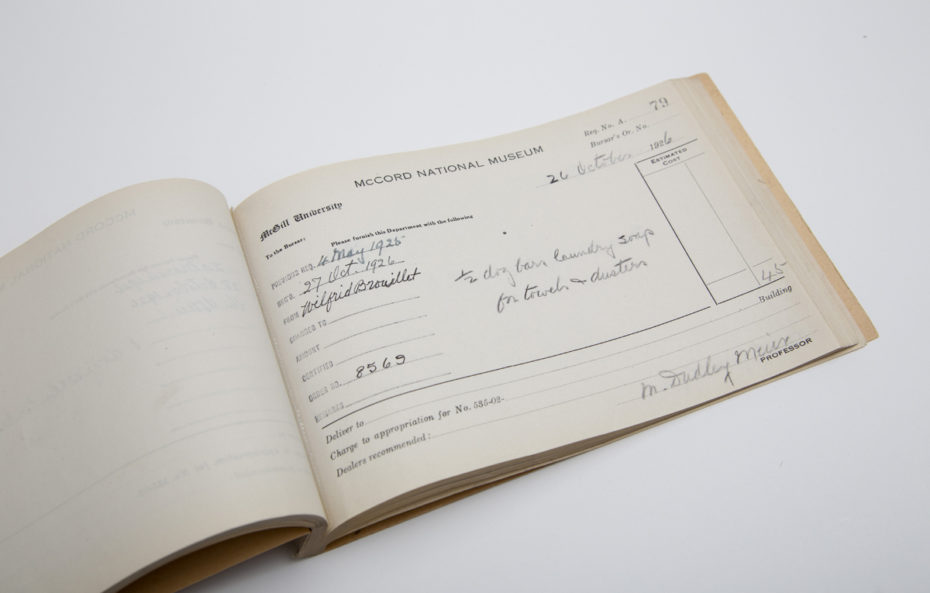 79
Req. No. A.
Bursar's Or. No.
McCORD NATIONAL MUSEUM
26 October 1926
ESTIMATED COST
McGill University
To the Bursar:
Please furnish this Department with the following
PREVIOUS REQ. 4 May 1925
REC'D. 27 Oct. 1926
FROM Wilfrid Brouillet
CHARGED TO
AMOUNT
CERTIFIED
ORDER NO. 8569
REMARKS
½ doz bars laundry soap
for towels & dusters
45
Building
M. Dudley
PROFESSOR
Deliver to
Charge to appropriation for No. 535-02-
Dealers recommended: